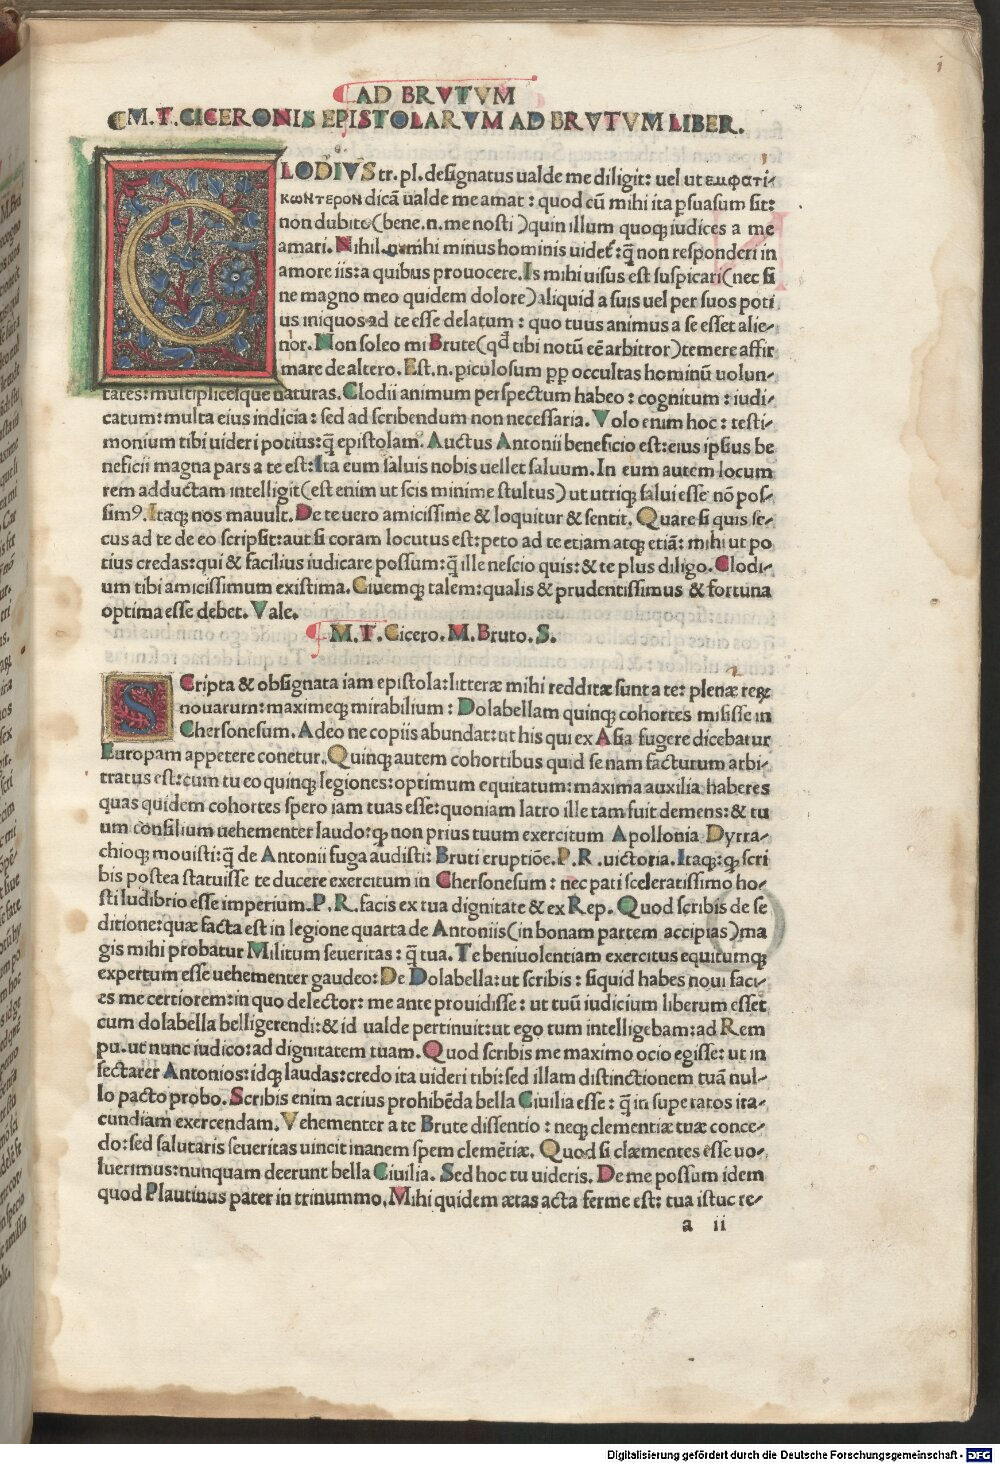 AD BRVTVM
M.T.CICERONIS EPISTOLARVM AD BRVTVM LIBER.
CLODIVS tr. pl. designatus ualde me diligit: uel ut εμφατι-
κωντερον dicã ualde me amat: quod cũ mihi ita ꝑsuasum sit:
non dubito(bene.n.me nosti )quin illum quoqȝ iudices a me
amari. Nihil.n.mihi minus hominis uidet᷑:q̃ non responderi in
amore iis:a quibus prouocere.Is mihi uisus est suspicari(nec si
ne magno meo quidem dolore)aliquid a suis uel per suos poti
us iniquos ad te esse delatum: quo tuus animus a se esset alie-
nor. Non soleo mi Brute(qđ tibi notũ eẽ arbitror)temere affir
mare de altero. Est.n. ꝑiculosum ꝓꝑ occultas hominũ uolun-
tates:multiplicesque naturas.Clodii animum perspectum habeo: cognitum: iudi-
catum:multa eius indicia: sed ad scribendum non necessaria. Volo enim hoc: testi-
monium tibi uideri potius:q̃ epistolam. Auctus Antonii beneficio est:eius ipsius be
neficii magna pars a te est:Ita eum saluis nobis uellet saluum. In eum autem locum
rem adductam intelligit(est enim ut scis minime stultus)ut utriqȝ salui esse nõ pos-
simꝰ.Itaqȝ nos mauult.De te uero amicissime & loquitur & sentit. Quare si quis se-
cus ad te de eo scripsit:aut si coram locutus est:peto ad te etiam atqȝ etiã: mihi ut po
tius credas:qui & facilius iudicare possum:q̃ ille nescio quis:& te plus diligo. Clodi-
um tibi amicissimum existima.Ciuemqȝ talem:qualis & prudentissimus & fortuna
optima esse debet. Vale.
M. T. Cicero. M. Bruto. S.
SCripta & obsignata iam epistola:litteræ mihi redditæ sunt a te: plenæ reꝝ
nouarum:maximeqȝ mirabilium: Dolabellam quinqȝ cohortes misisse in
Chersonesum. Adeo ne copiis abundat:ut his qui ex Asia fugere dicebatur
Europam appetere conetur. Quinqȝ autem cohortibus quid se nam facturum arbi-
tratus est:cum tu eo quinqȝ legiones:optimum equitatum: maxima auxilia haberes
quas quidem cohortes spero iam tuas esse:quoniam latro ille tam fuit demens:& tu
um consilium uehementer laudo:qȝ non prius tuum exercitum Apollonia Dyrra-
chioqȝ mouisti:q̃ de Antonii fuga audisti: Bruti eruptiõe.P.R.uictoria.Itaqȝ:qȝ scri
bis postea statuisse te ducere exercitum in Chersonesum: nec pati sceleratissimo ho-
sti ludibrio esse imperium.P.R.facis ex tua dignitate & ex Rep. Quod scribis de se
ditione:quæ facta est in legione quarta de Antoniis(in bonam partem accipias)ma
gis mihi probatur Militum seueritas: q̃ tua. Te beniuolentiam exercitus equitumqȝ
expertum esse uehementer gaudeo: De Dolabella:ut scribis: siquid habes noui faci-
es me certiorem:in quo delector: me ante prouidisse: ut tuũ iudicium liberum esset
cum dolabella belligerendi:& id ualde pertinuit:ut ego tum intelligebam:ad Rem
pu.ut nunc iudico:ad dignitatem tuam. Quod scribis me maximo ocio egisse: ut in
sectarer Antonios:idqȝ laudas:credo ita uideri tibi:sed illam distinctionem tuã nul-
lo pacto probo. Scribis enim acrius prohibẽda bella Ciuilia esse: q̃ in superatos ira-
cundiam exercendam. Vehementer a te Brute dissentio: neqȝ clementiæ tuæ conce-
do:sed salutaris seueritas uincit inanem spem clemẽtiæ. Quod si clæmentes esse uo-
luerimus:nunquam deerunt bella Ciuilia. Sed hoc tu uideris. De me possum idem
quod Plautinus pater in trinummo. Mihi quidem ætas acta ferme est: tua istuc re-
a ii
Digitalisierung gefördert durch die Deutsche Forschungsgemeinschaft - DFG